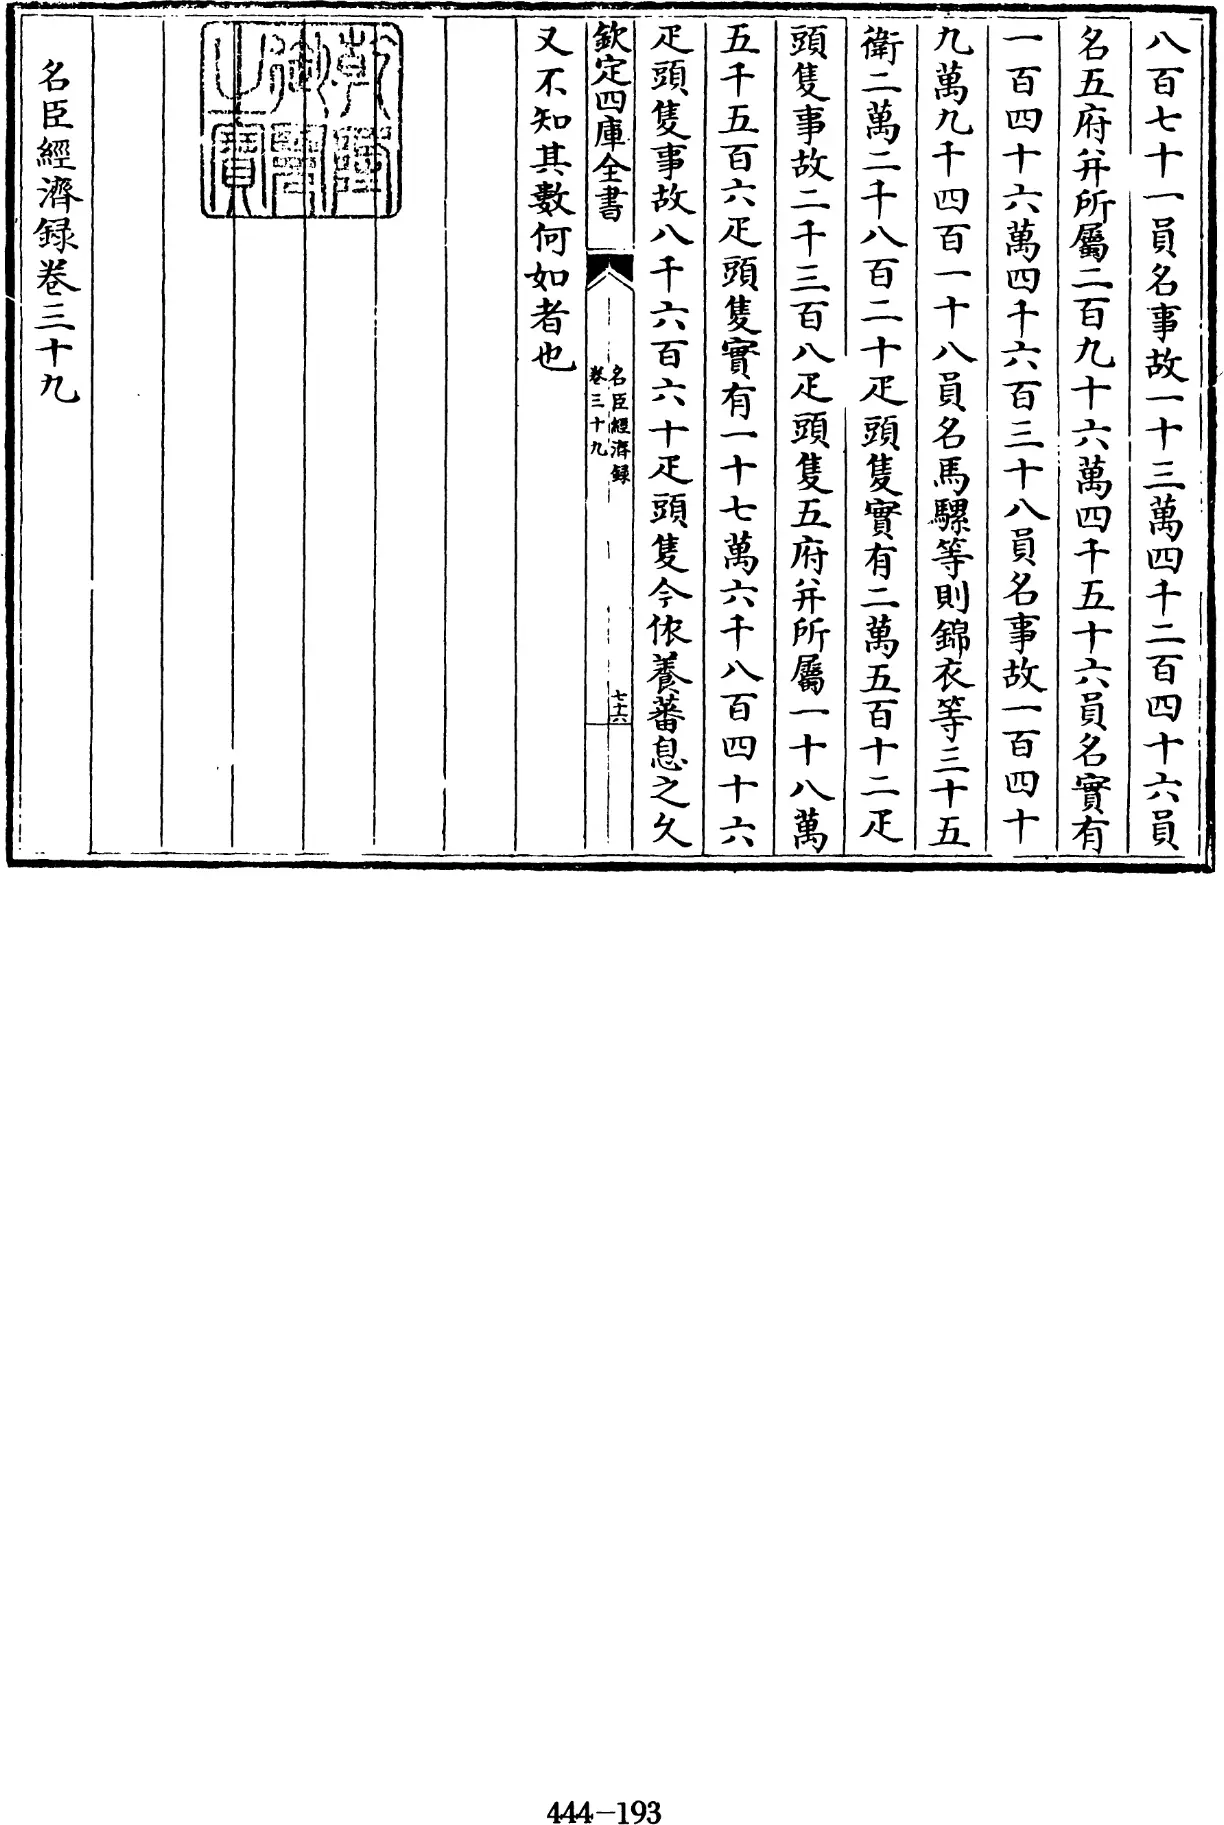 八百七十一員名事故一十三萬四千二百四十六員
名五府并所屬二百九十六萬四千五十六員名實有
一百四十六萬四千六百三十八員名事故一百四十
九萬九千四百一十八員名馬騾等則錦衣等三十五
衛二萬二千八百二十疋頭隻實有二萬五百十二疋
頭隻事故二千三百八疋頭隻五府并所屬一十八萬
五千五百六疋頭隻實有一十七萬六千八百四十六
疋頭隻事故八千六百六十疋頭隻今依養蕃息之久
欽定四庫全書
名臣經濟録
卷三十九
七十六
又不知其數何如者也
乾隆御覽之寶
名臣經濟録卷三十九
444-193